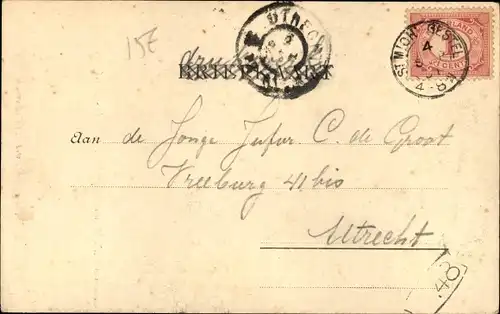 15E
drukwerk
BRIEFKAART
UTRECHT
ST MICH: GESTEL
4
4-8
Aan de Jonge Jufvr. C. de Groot
Vreeburg 41 bis
Utrecht
48